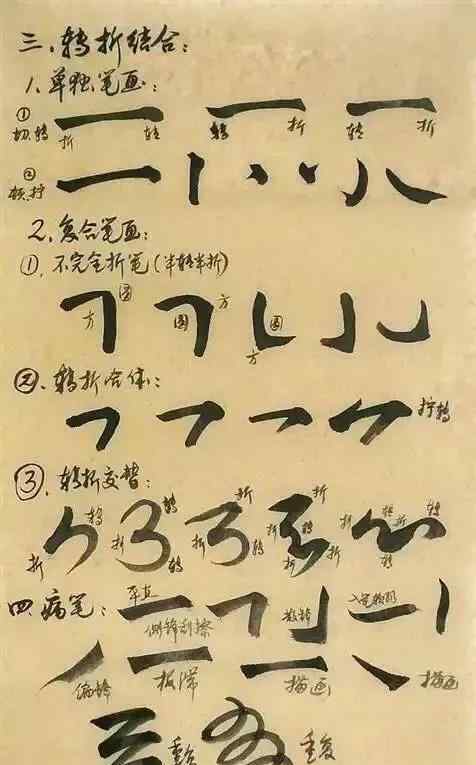 三、转折结合：
1.单独笔画：
① 切、转 折 转 转 折 转 折
② 顿、拧
2、复合笔画：
①、不完全折笔（半转半折）
方 圆 圆 方 方 圆
②、转折合体：
拧转
③、转折交替：
折 转 折 转 转 折 折 转 折 折 转 折 折 折 转 折 转 转
四、病笔： 平直 侧锋刮擦 散锋
偏锋 板滞 描画 描画
重叠 重复